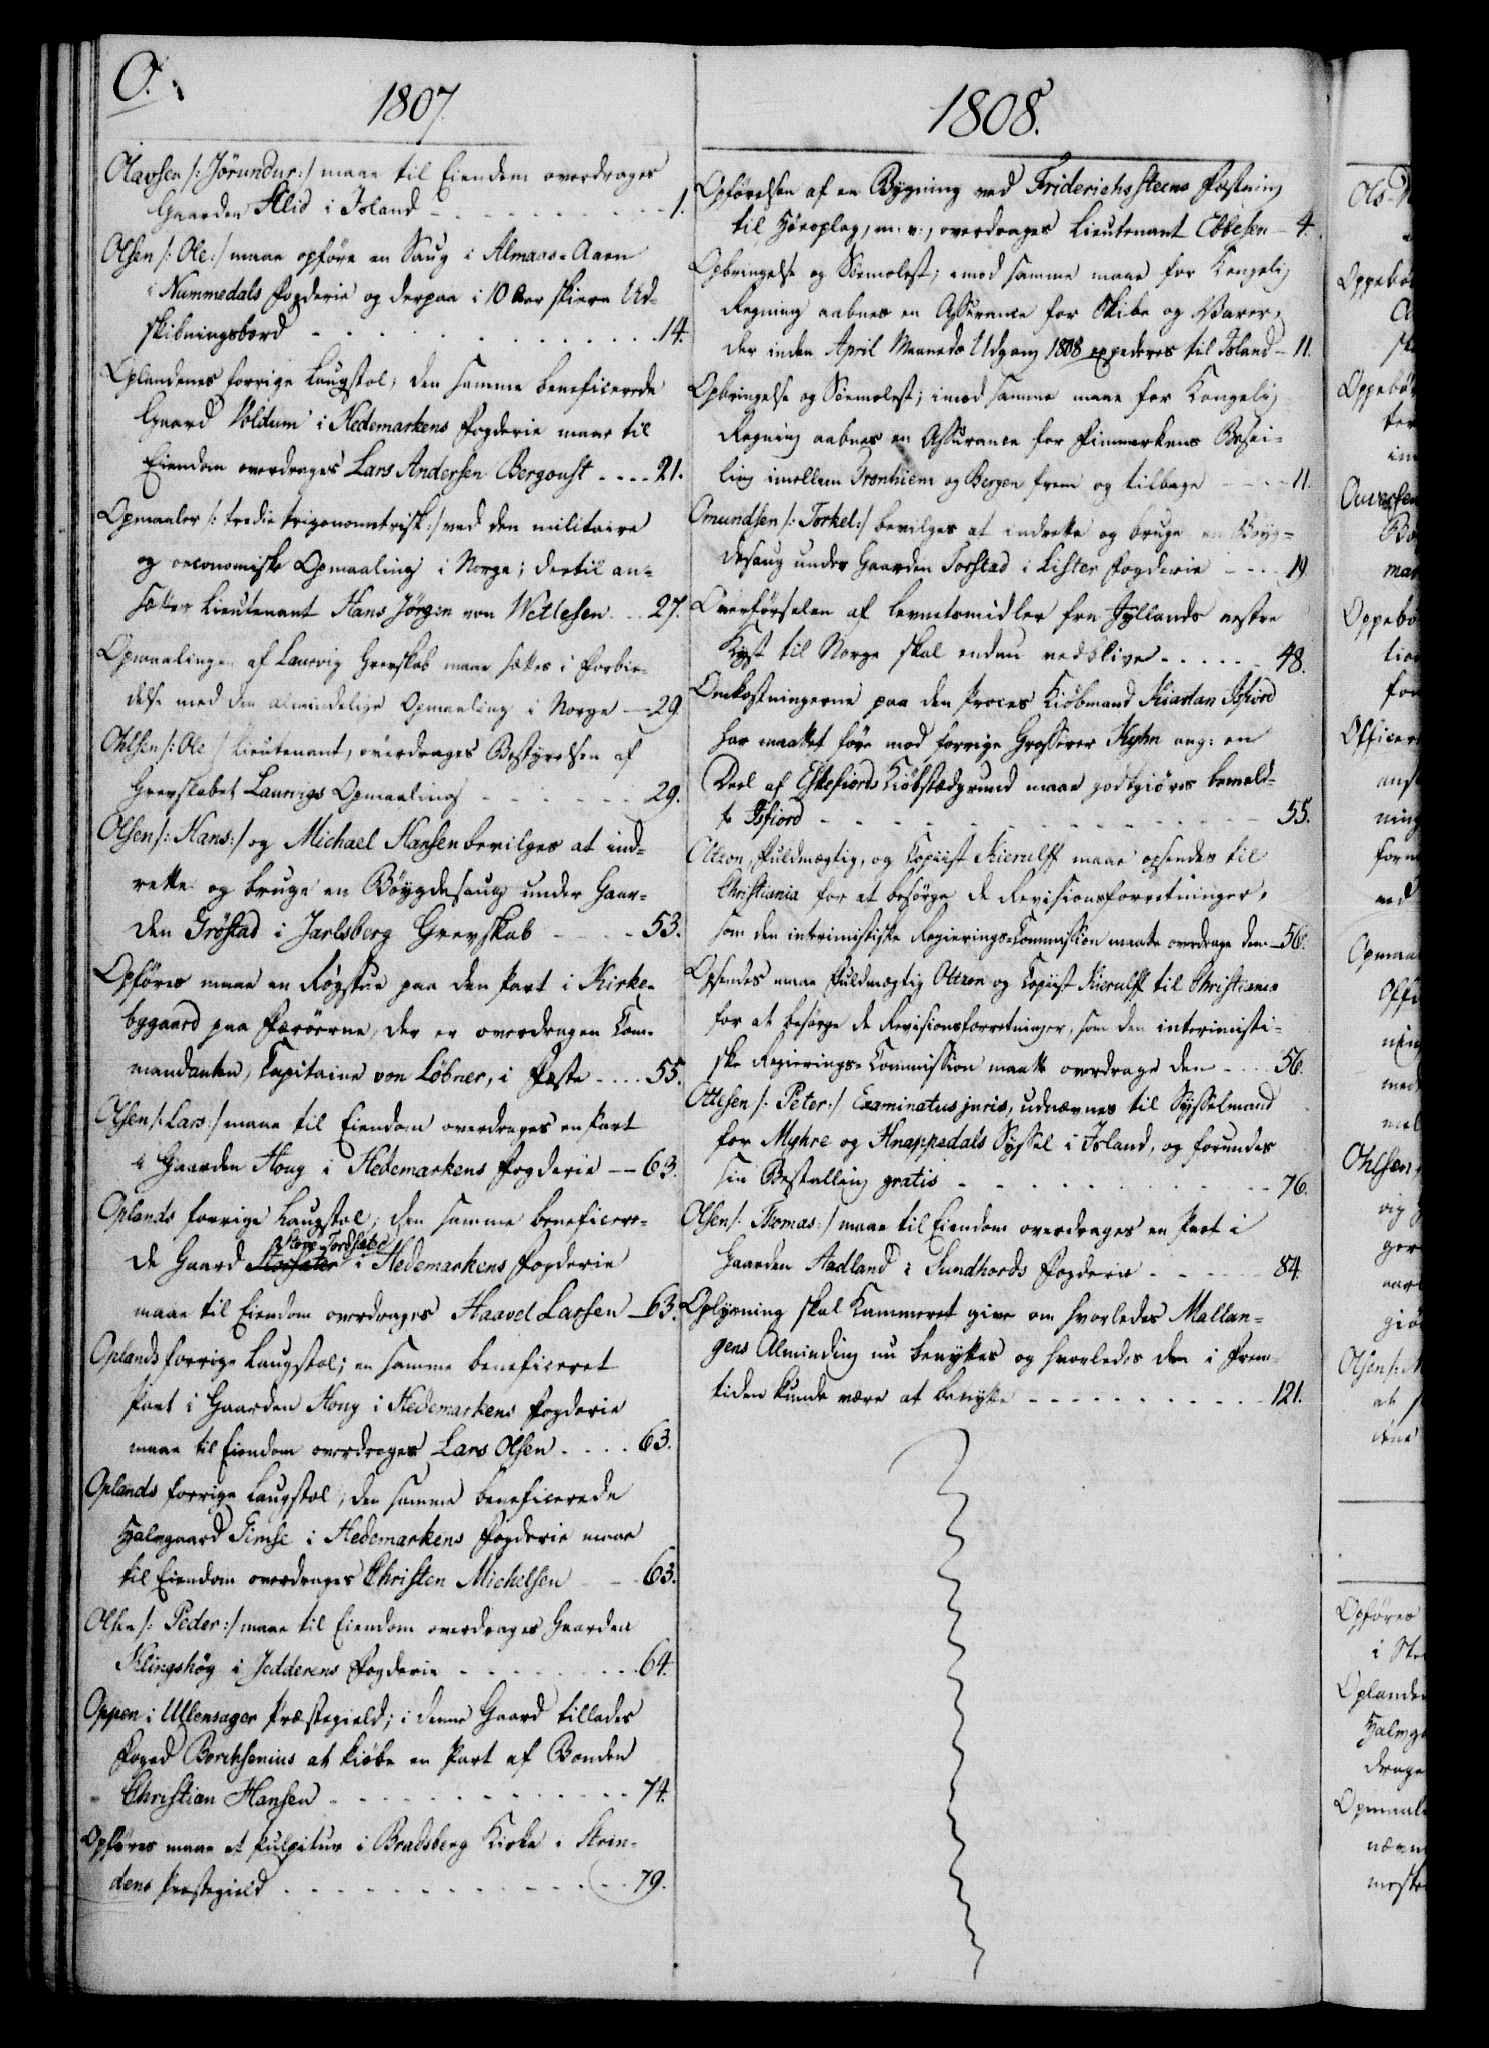 O.
1807.
Olavsen /: Jörundur:/ maae til Eiendom overdrages
Gaarden Hlid i Island - - - 1.
Olsen /: Ole:/ maae opföre en Saug i Almaas-Aaen
i Nummedals Fogderie og derpaa i 10 Aar skiere Ud-
skibningsbord - - - 14.
Oplandenes forrige Laugstol; den samme beneficerede
Gaard Voldum i Hedemarkens Fogderie maae til
Eiendom overdrages Lars Andersen Bergoust - - - 21.
Opmaaler /: tredie trigonometrisk:/ ved den militaire
og oeconomiske Opmaaling i Norge; dertil an-
sættes Lieutenant Hans Jörgen von Wetlesen - - 27.
Opmaalingen af Laurvig Grevskab maae sættes i Forbin-
delse med den almindelige Opmaaling i Norge - 29.
Ohlsen /: Ole / Lieutenant, overdrages Bestyrelsen af
Grevskabet Laurvigs Opmaaling - - - 29.
Olsen /: Hans:/ og Michael Hansen bevilges at ind-
rette og bruge en Böygdesaug under Gaar-
den Gröstad i Jarlsberg Grevskab - - - 53.
Opföres maae en Rögstue paa den Part i Kirke-
bygaard paa Færöerne, der er overdragen Com-
mandanten, Capitaine von Löbner, i Fæste - - - 55.
Olsen /: Lars:/ maae til Eiendom overdrages en Part
i Gaarden Houg i Hedemarkens Fogderie - - 63.
Oplands forrige Laugstol; den samme beneficere-
de Gaard Store Tordsæter i Hedemarkens Fogderie
maae til Eiendom overdrages Haavel Larsen - 63.
Oplands forrige Laugstol; en samme beneficeret
Part i Gaarden Houg i Hedemarkens Fogderie
maae til Eiendom overdrages Lars Olsen - - - 63.
Oplands forrige Laugstol; den samme beneficerede
Halvgaard Timse i Hedemarkens Fogderie maae
til Eiendom overdrages Christen Michelsen - - 63.
Olsen /: Peder:/ maae til Eiendom overdrages Gaarden
Klingshög i Jedderens Fogderie - - - 64.
Oppen i Ullensager Præstegield; i denne Gaard tillades
Foged Borchsenius at kiöbe en Part af Bonden
Christian Hansen - - - 74.
Opföres maae et Pulpitur i Bradsberg Kirke i Strin-
dens Præstegield - - - 79.
1808.
Opförelsen af en Bygning ved Friderichssteens Fæstning
til Höeoplag, m: v:, overdrages Lieutenant Ebbesen - 4.
Opbringelse og Söemolest; imod samme maae for Kongelig
Regning aabnes en Assurance for Skibe og Varer,
der inden April Maaneds Udgang 1808 expederes til Island - 11.
Opbringelse og Söemolest; imod samme maae for Kongelig
Regning aabnes en Assurance for Finmarkens Besei-
ling imellem Tronhiem og Bergen frem og tilbage - - - 11.
Omundsen /: Torkel:/ bevilges at indrette og bruge en Böyg-
desaug under Gaarden Torstad i Lister Fogderie - - - 19.
Overförselen af Levnetsmidler fra Jyllands vestre
Kyst til Norge skal endnu vedblive - - - 48.
Omkostningerne paa den Proces Kiöbmand Kiartan Isfiord
har maattet före mod forrige Grosserer Kyhn ang: en
Deel af Eskefiords Kiöbstædgrund maae godtgiöres bemeld-
te Isfiord - - - 55.
Olteon, Fuldmægtig, og Copiist Kierulff maae opsendes til
Christiania for at besörge de Revisionsforretninger,
som den interimistiske Regierings-Commission maatte overdrage dem - 56.
Opsendes maae Fuldmægtig Olteon og Copiist Kierulff til Christiania
for at besörge de Revisionsforretninger, som den interimisti-
ske Regierings-Commission maatte overdrage dem - - - 56.
Ottesen /: Peter:/ Examinatus juris, udnævnes til Sysselmand
for Myhre og Hnappedals Syssel i Island, og forundes
sin Bestalling gratis - - - 76.
Olsen /: Thomas:/ maae til Eiendom overdrages en Part i
Gaarden Aadland i Sundhords Fogderie - - - 84.
Oplysning skal Kammeret give om hvorledes Mallan-
gens Alminding nu benyttes og hvorledes den i Frem-
tiden kunde være at benytte - - - 121.